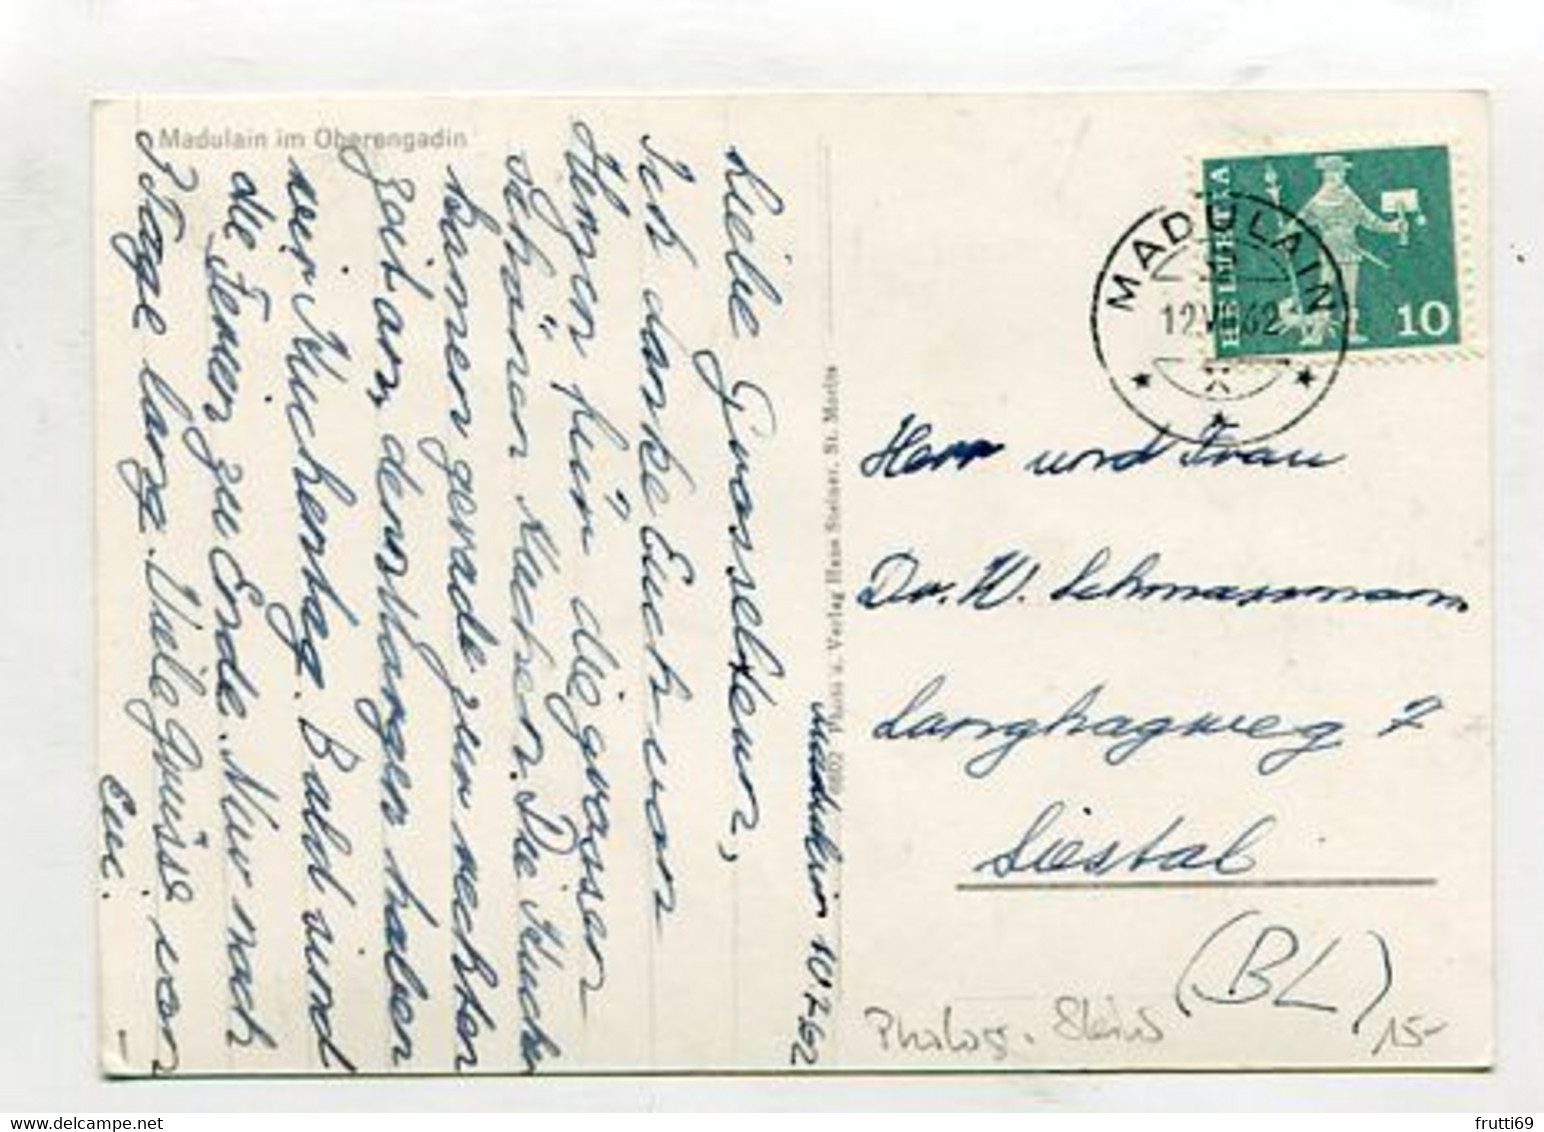 Madulain im Oberengadin
Madulain 10.7.62
Liebe Grosseltern,
Ich danke Euch von
Herzen für die grossen
schönen Kuchen. Die Kuche
kamen gerade zur rechten
Zeit an, denn Morgen haben
wir Kuchentag. Bald sind
die Ferien zu Ende. Nur noch
3 Tage lang. Viele Grüsse von
Photo u. Verlag Hans Steiner, St. Moritz
HELVETIA
10
MADULAIN
12.VII.62
Herr und Frau
Dr. W. Schmassmann
Langhagweg 7
Liestal
(BL)
15-
frutti69